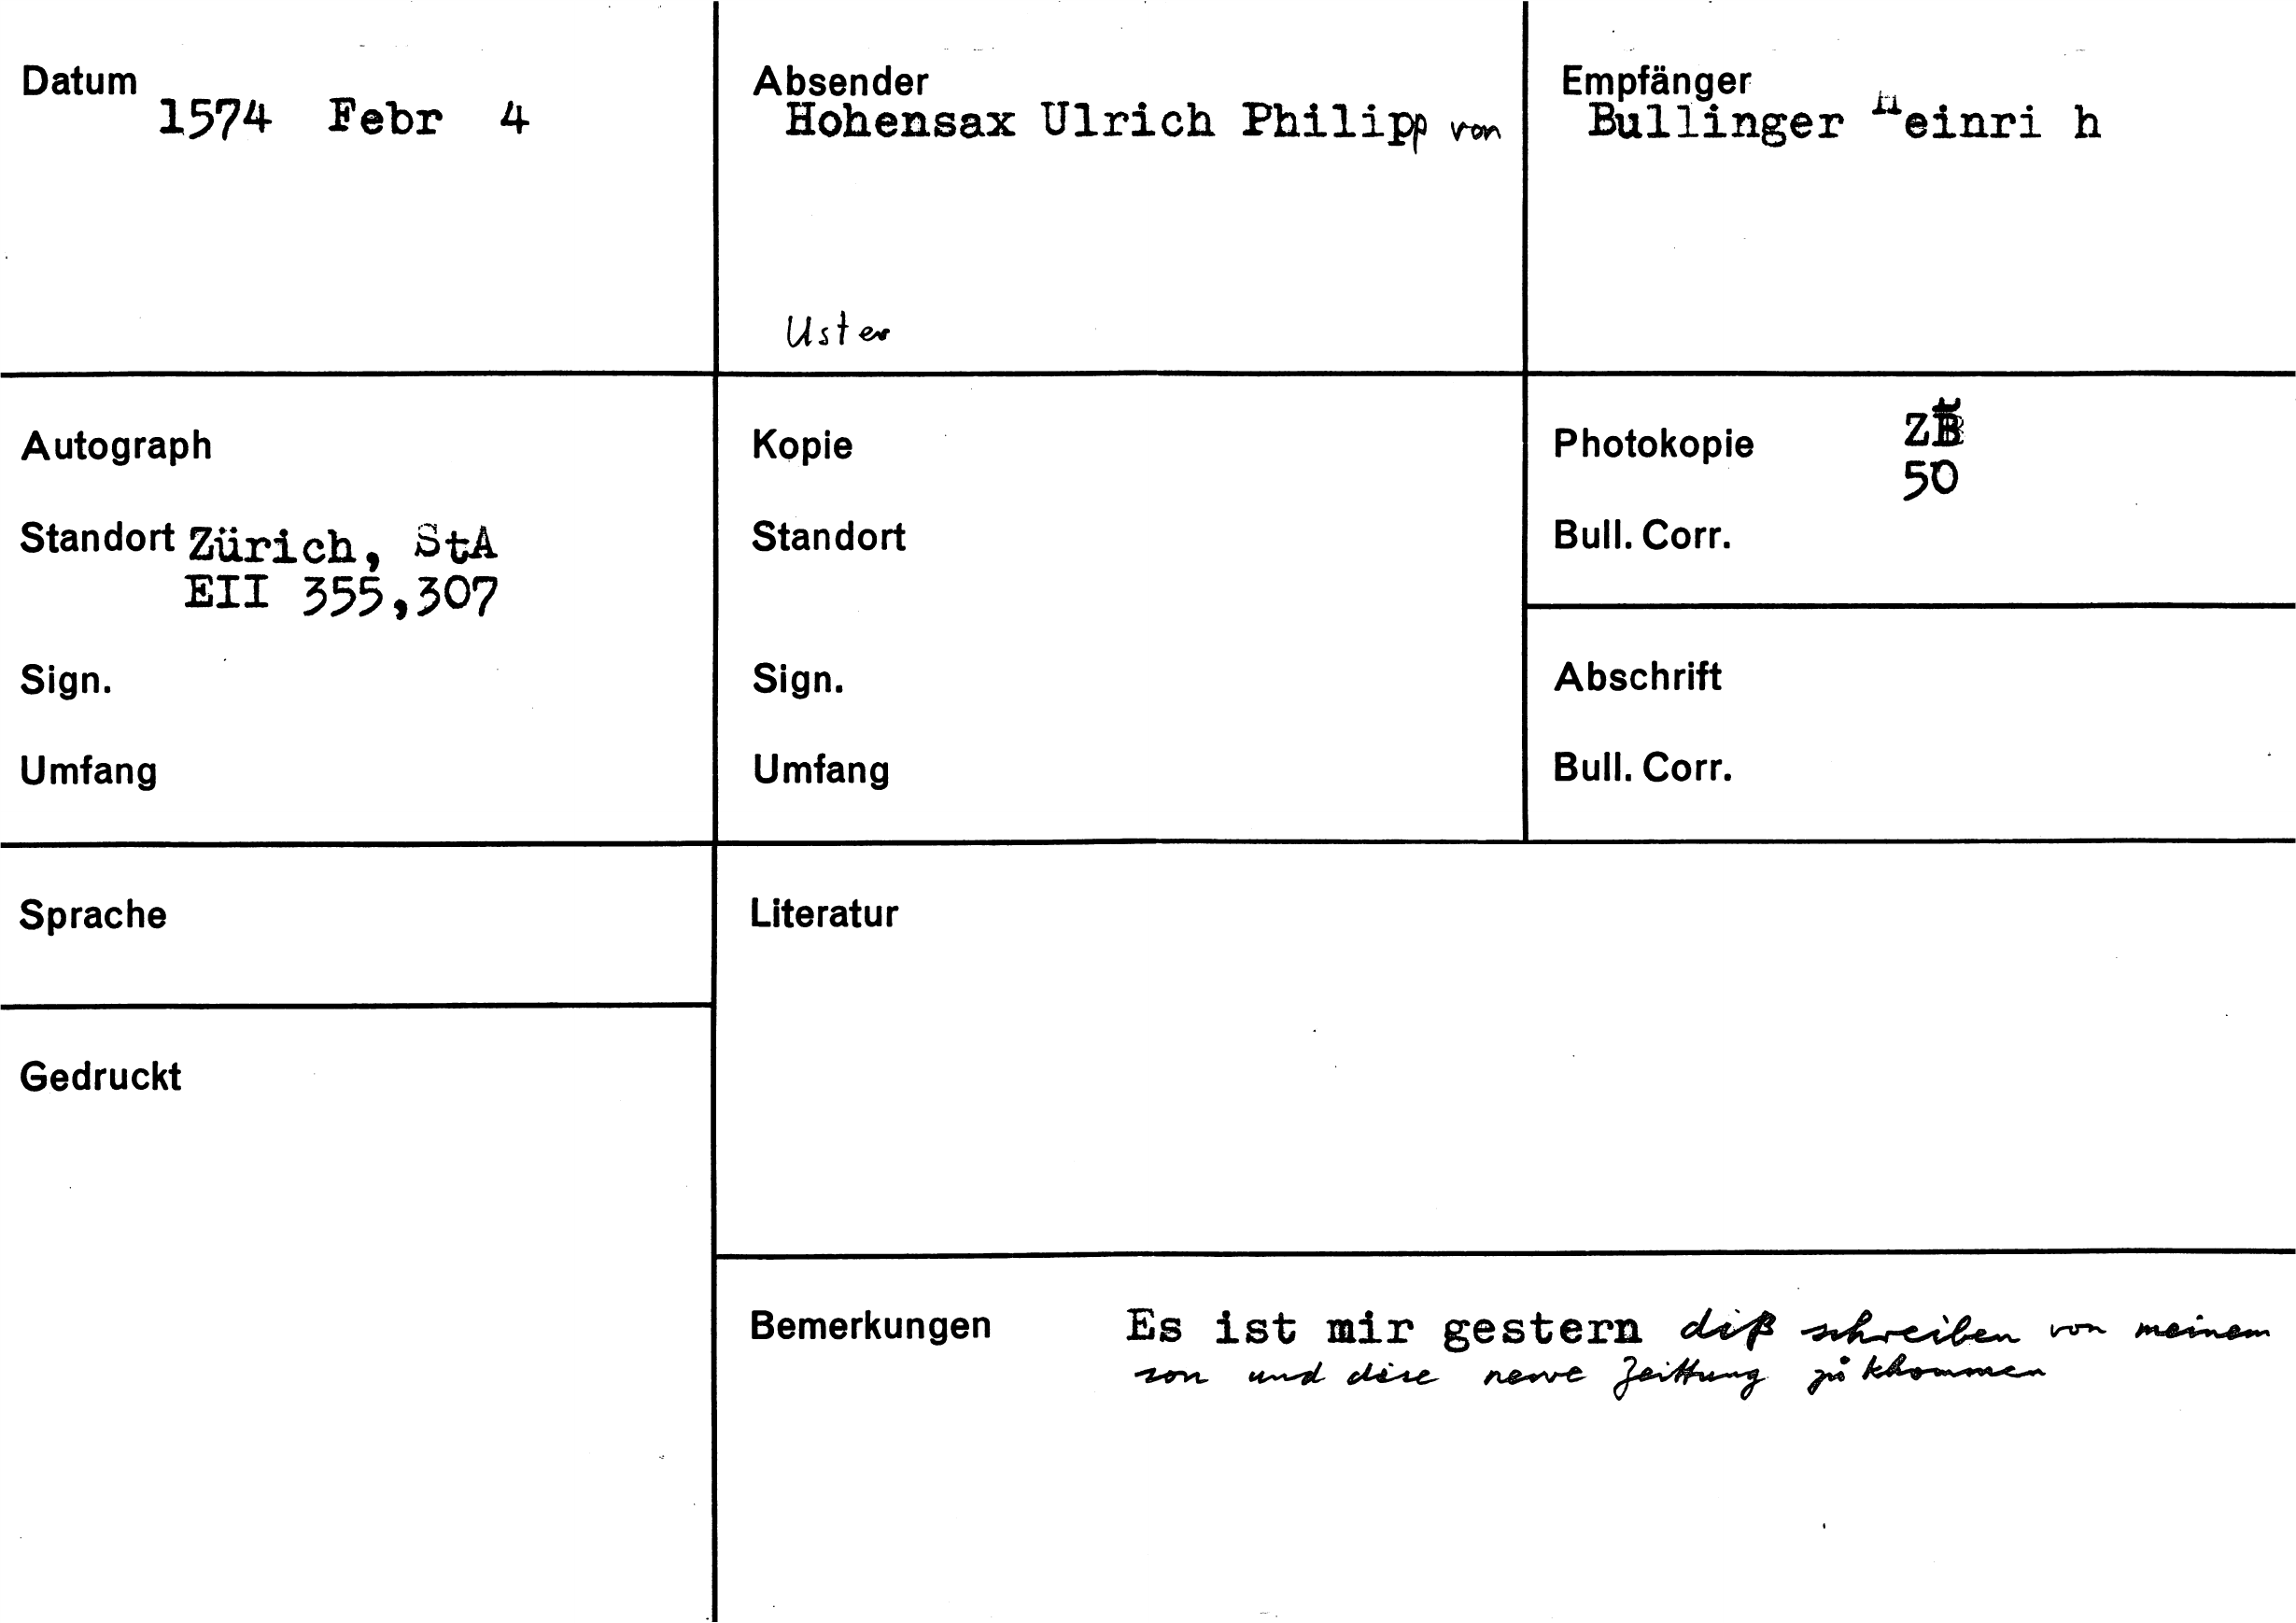 Datum
1574 Febr 4
Absender
Hohensax Ulrich Philipp von
Uster
Empfänger
Bullinger Heinri h
Autograph
Standort Zürich, StA
EII 355,307
Sign.
Umfang
Kopie
Standort
Sign.
Umfang
Photokopie
50
Bull. Corr.
Abschrift
Bull. Corr.
Sprache
Gedruckt
Literatur
Bemerkungen Es ist mir gestern diß schreiben von meinem
son und dise newe Zeittung zů khommen